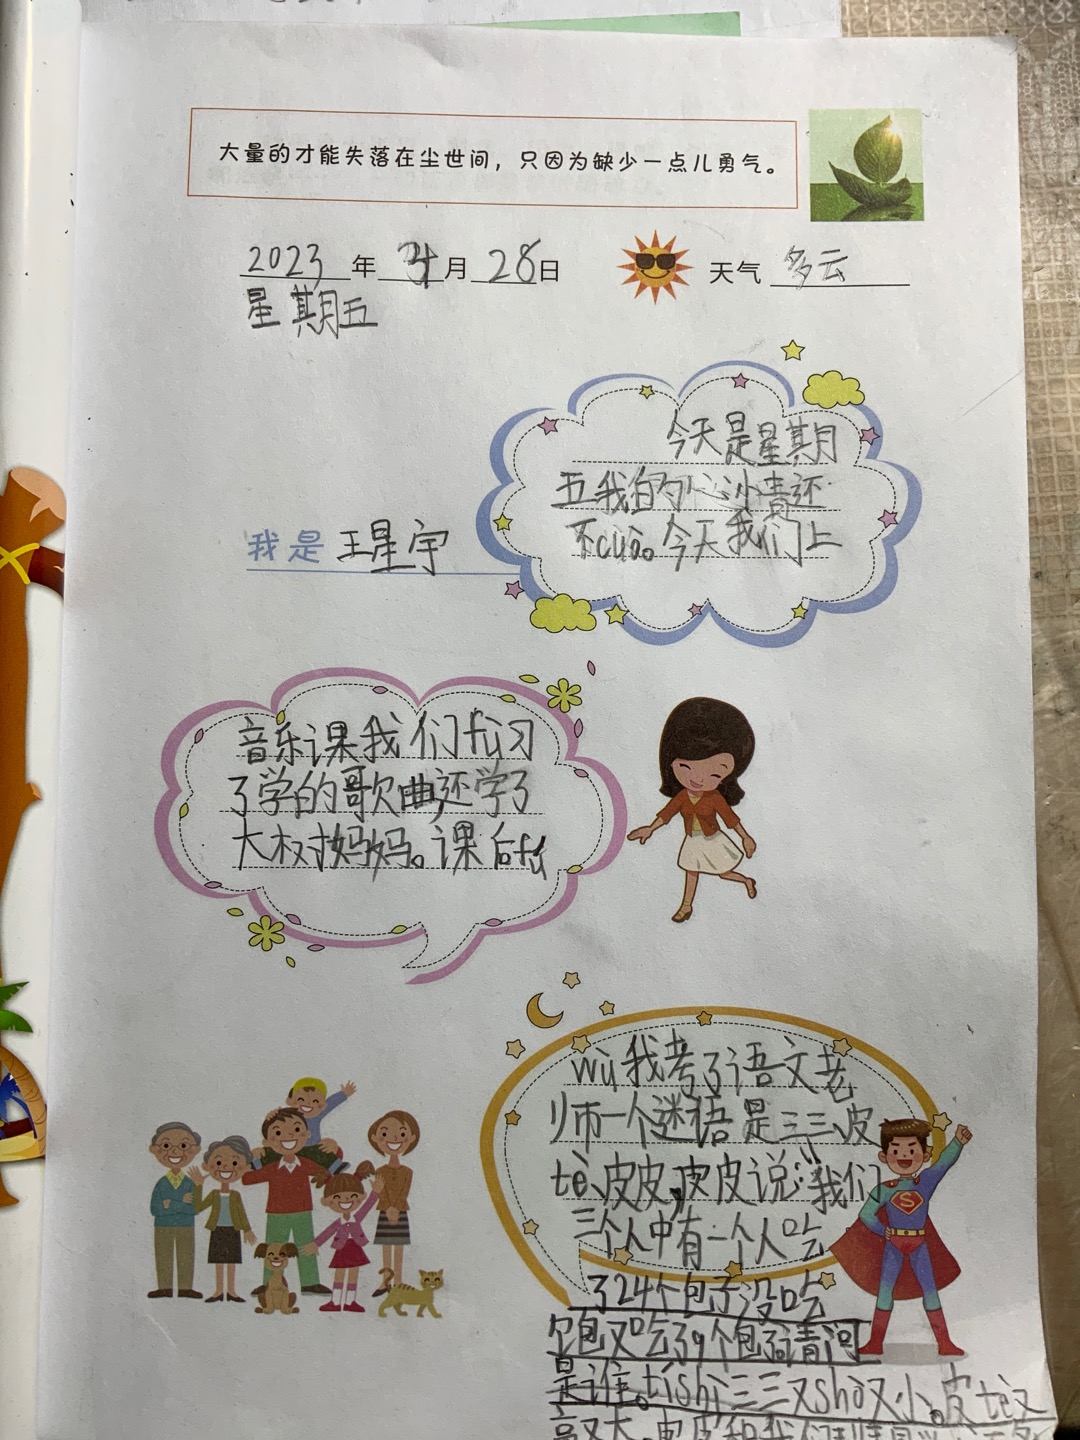 大量的才能失落在尘世间，只因为缺少一点儿勇气。
2023年4月28日 天气 多云
星期五
今天是星期
五我的心情还
不cuò。今天我们上
我是 王星宇
音乐课我们fù习
了学的歌曲,还学了
大树妈妈。课后fú
wù我考了语文老
师一个谜语是三三、皮
tè、皮皮,皮皮说:"我们
三个人中有一个人吃
了24个包子没吃
包又吃了9个包子。请问
是谁。tíshì三三又shòu又小。皮tè又
高又大。皮皮和我们